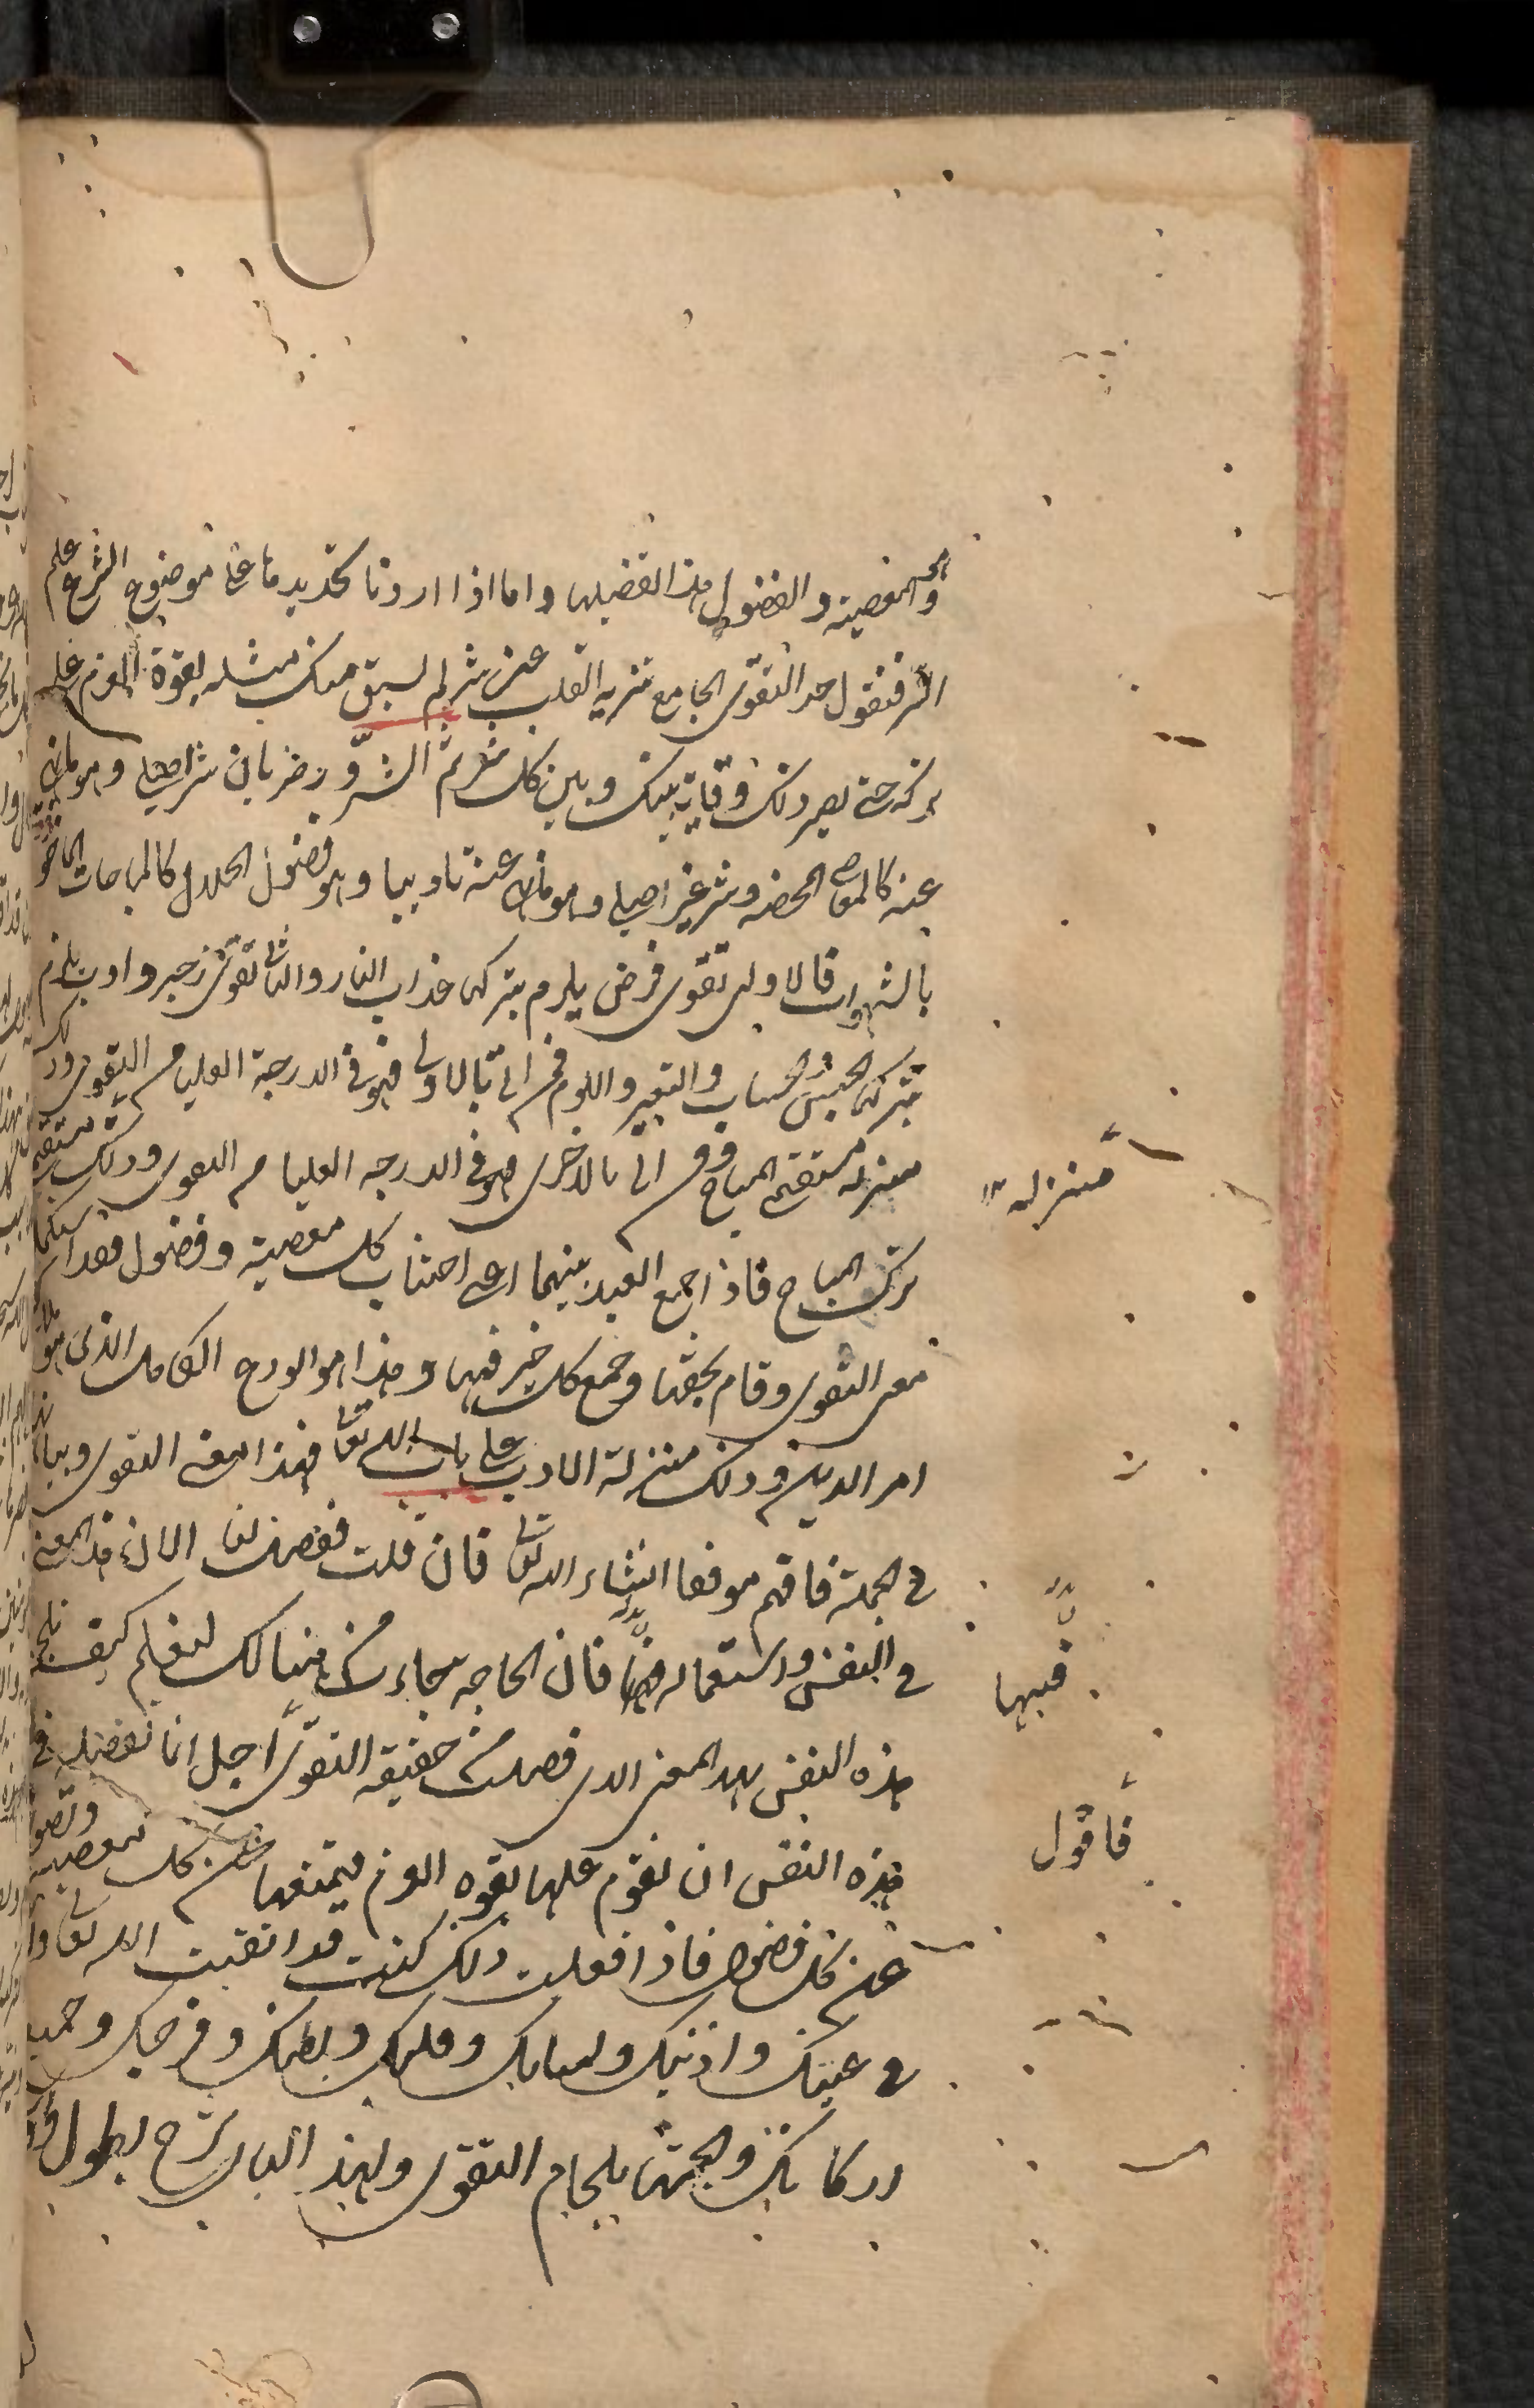 والمعصية والفضول هذا لفضيلها واما اذا اردنا تحديدها على موضوع الشرع علم
السر فنقول حد التقوى الجامع تنزيه القلب عن شر لم يسبق منك مثله بقوة العزم على
تركه حتى يصير ذلك وقاية بينك وبين كل شر ثم الشرور ضربان شر اصلي وهو ما نهى
عنه كالمعاصي المحضه وشر غير اصلي وهو ما نهى عنه تاديبا وهو فضول الحلال كالمباحات الماخوذة
بالشهوات فالاولى تقوى فرض يلزم بتركها عذاب النار والثانية تقوى زجر وادب يلزم
بتركها الحبس والحساب والتعيير واللوم فمن اتى بالاولى فهو في الدرجة العليا من التقوى وذلك
منزلة مستقيم المباح ومن اتى بالاخرى فهو في الدرجه العليا من التقوى وذلك
منزلة
ترك المباح فاذا جمع العبد بينهما اعنى اجتناب كل معصية وفضول فقد استكمل
معنى التقوى وقام بحقها وجمع كل خير فيها وهذا هو الورع الكامل الذى هو ملاك
امر الدين وذلك منزلة الادب على باب الله تعالى فهذا معنى التقوى وبيانه
في الجملة فافهم موفقا انشاء الله تعالى فان قلت ففصل لنا الان هذا المعنى
في النفس واستعماله فيها فان الحاجه جاءت من هنالك لنعلم كيف نلجم
فيها
هذه النفس بهذا المعنى الذى فصلت من حقيقه التقوى اجل انا تفصيله في
فاقول
هذه النفس ان تقوم عليها بقوه العزم فيمنعها عن كل معصيه وتصونها
عن كل فضول فاذا فعلت ذلك كنت قد اتقيت الله تعالى
في عينك واذنيك ولسانك وقلبك وبطنك وفرجك وجميع
اركانك والجمتها بلجام التقوى ولهذا الباب شرح يطول